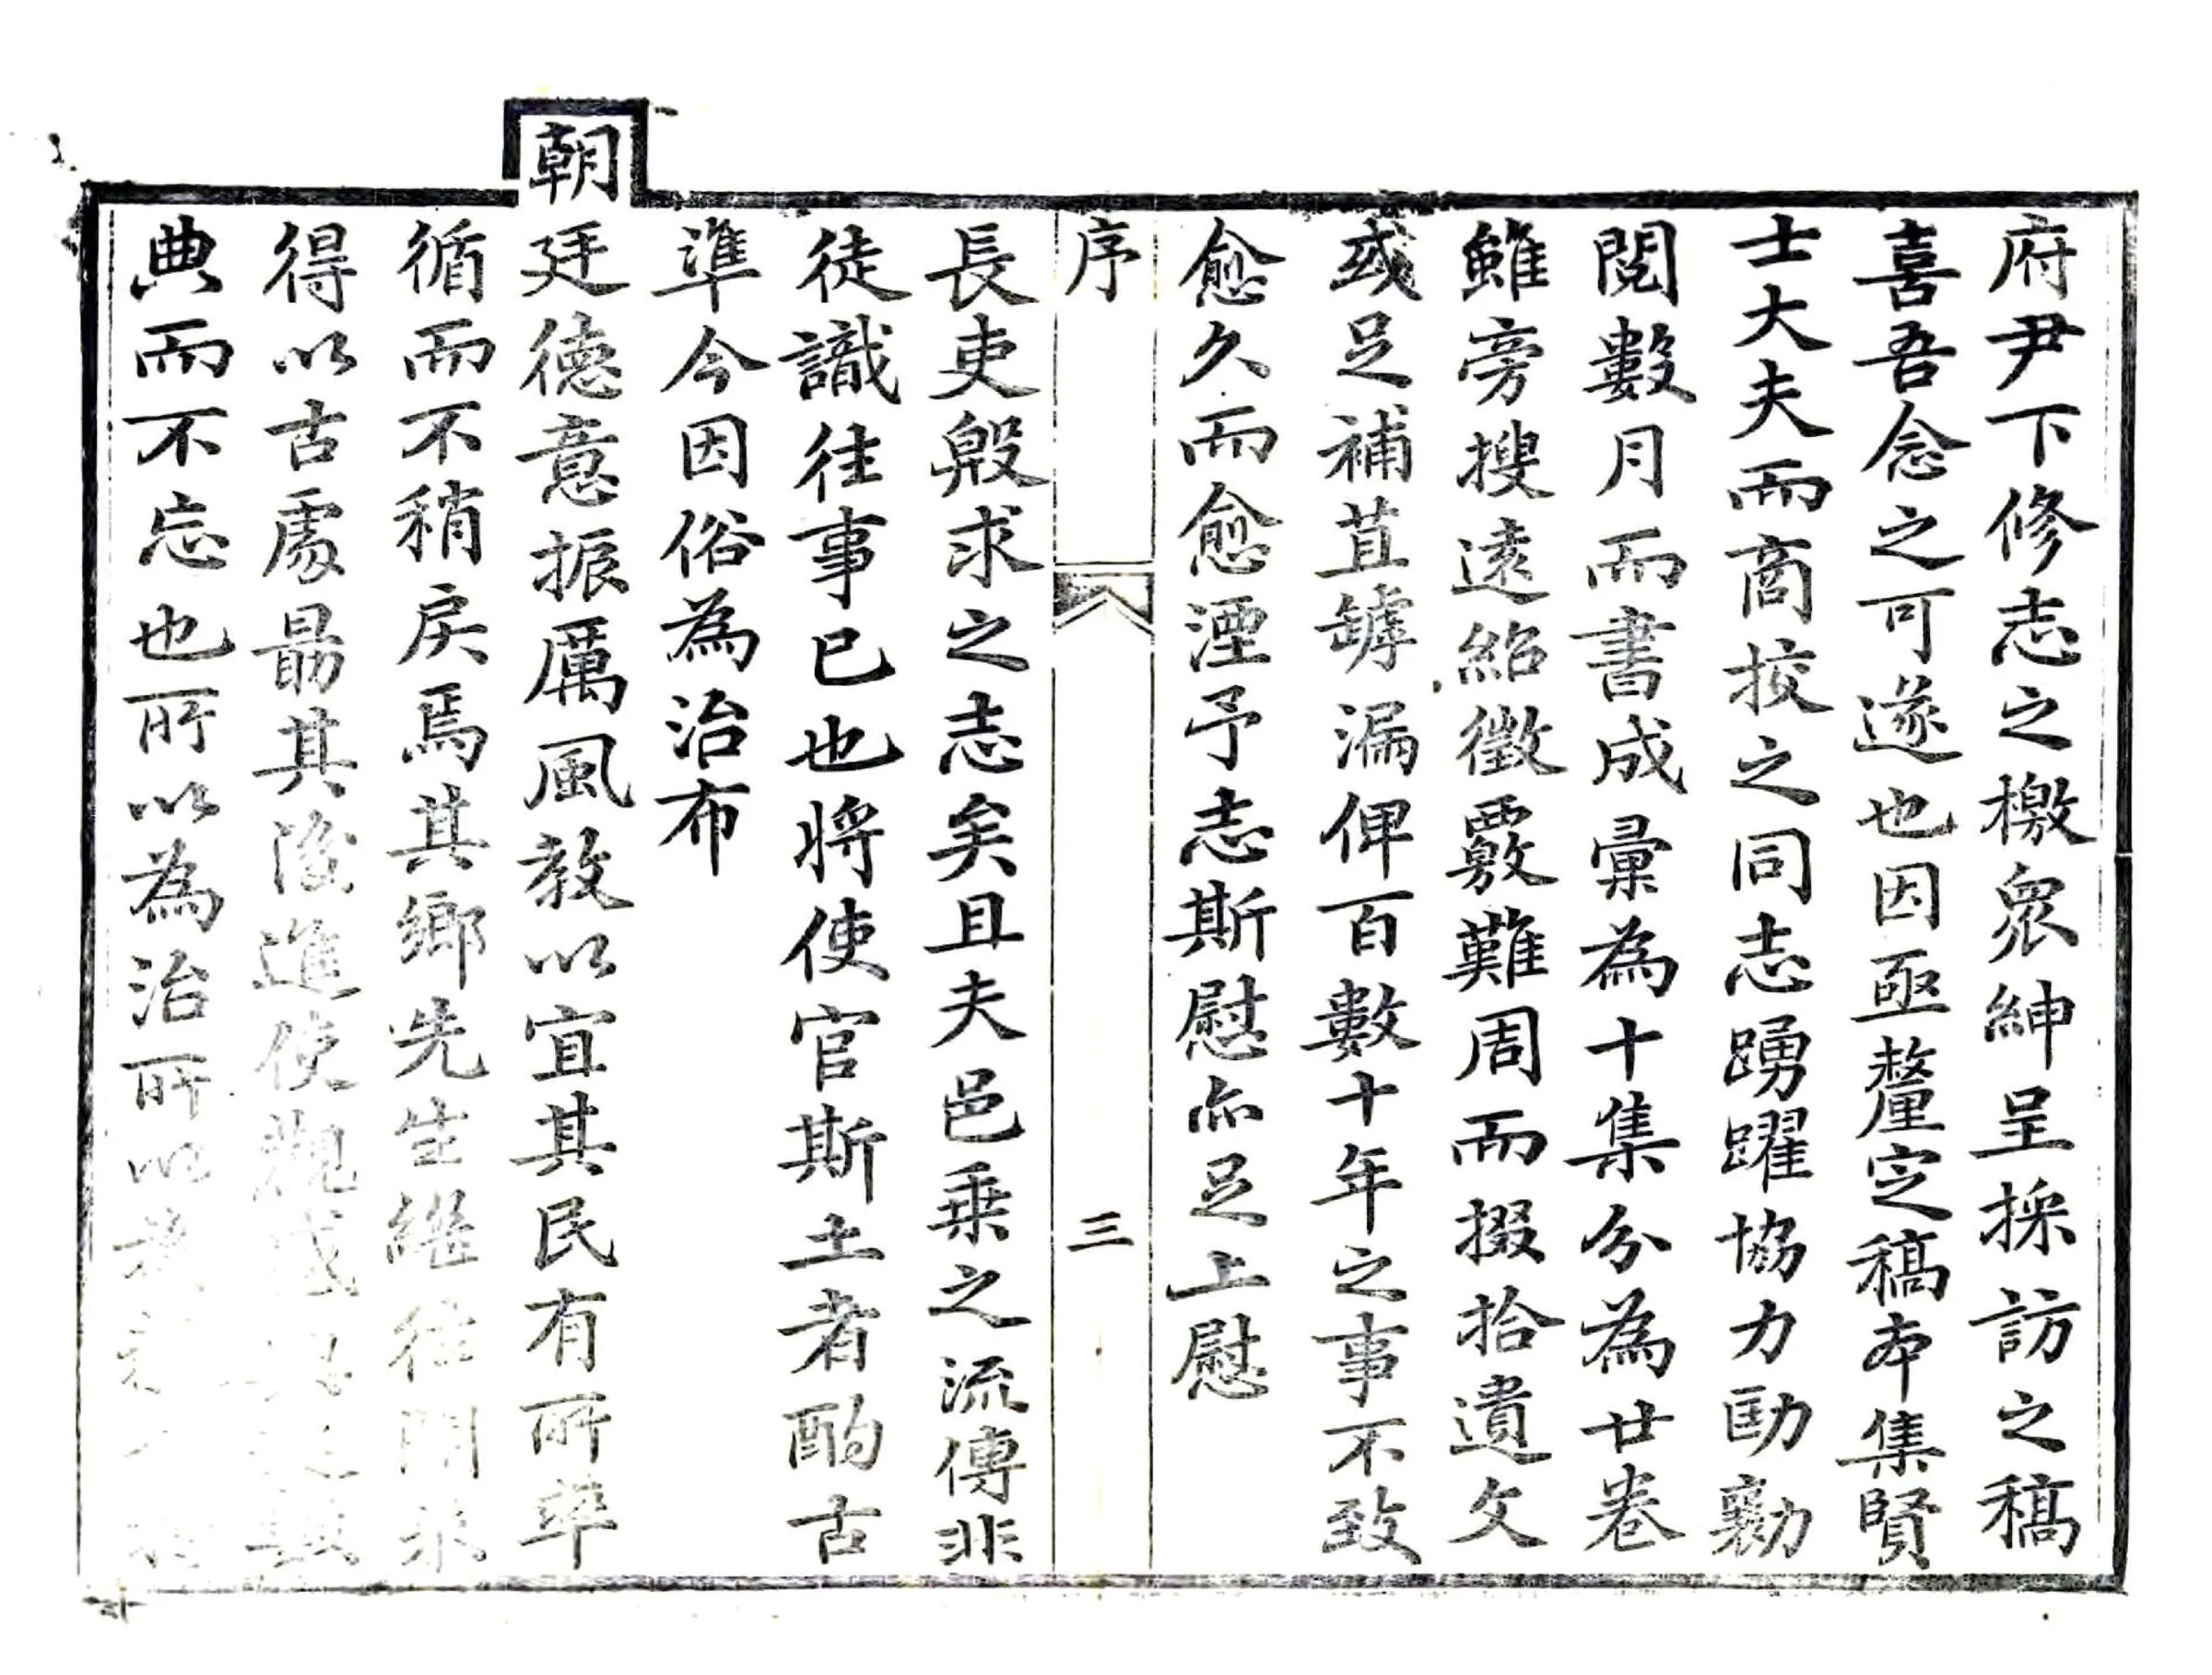 府尹下修志之檄衆紳呈採訪之稿
喜吾念之可遂也因亟釐定稿本集賢
士大夫而商挍之同志踴躍協力勖勷
閱數月而書成彙為十集分為廿卷
雖旁搜遠紹徵覈難周而掇拾遺文
或足補苴罅漏俾百數十年之事不致
愈久而愈湮予志斯慰亦足上慰
序
三
長吏殷求之志矣且夫邑乗之流傳非
徒識往事已也將使官斯土者酌古
準今因俗為治布
朝廷德意振厲風教以宜其民有所率
循而不稍戾焉其鄉先生繼往開來
得以古處勗其後進使觀感
典而不忘也所以為治所以